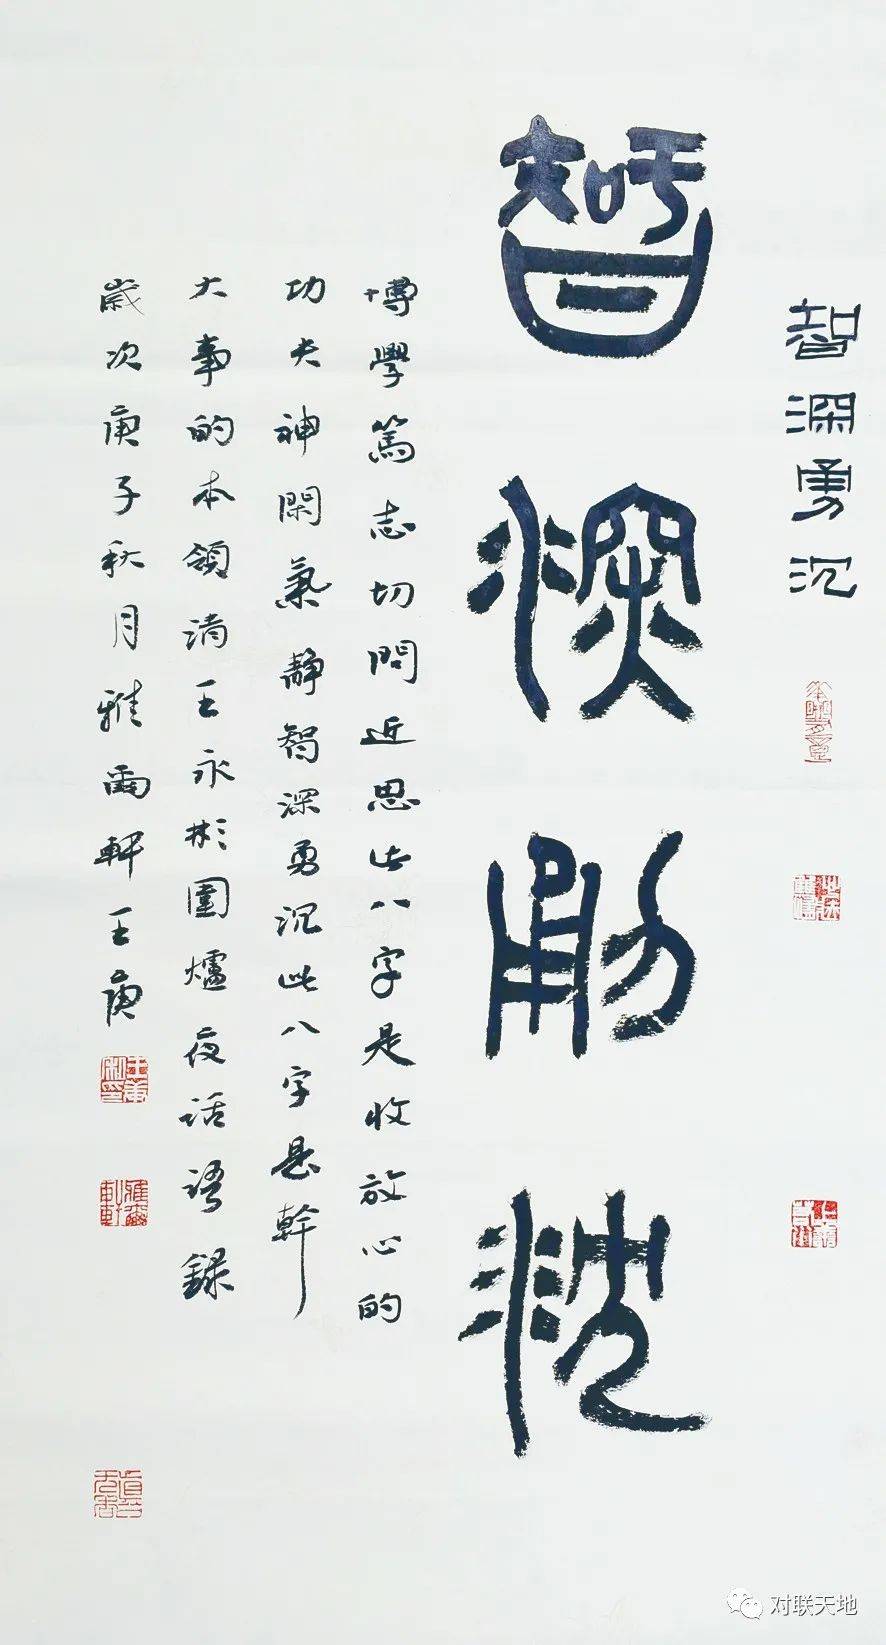 智深勇沉
智深勇沈
博學篤志切問近思此八字是收放心的
功夫神閑氣靜智深勇沉此八字是幹
大事的本領清王永彬圍爐夜話語錄
歲次庚子秋月雅雨軒王庚
对联天地